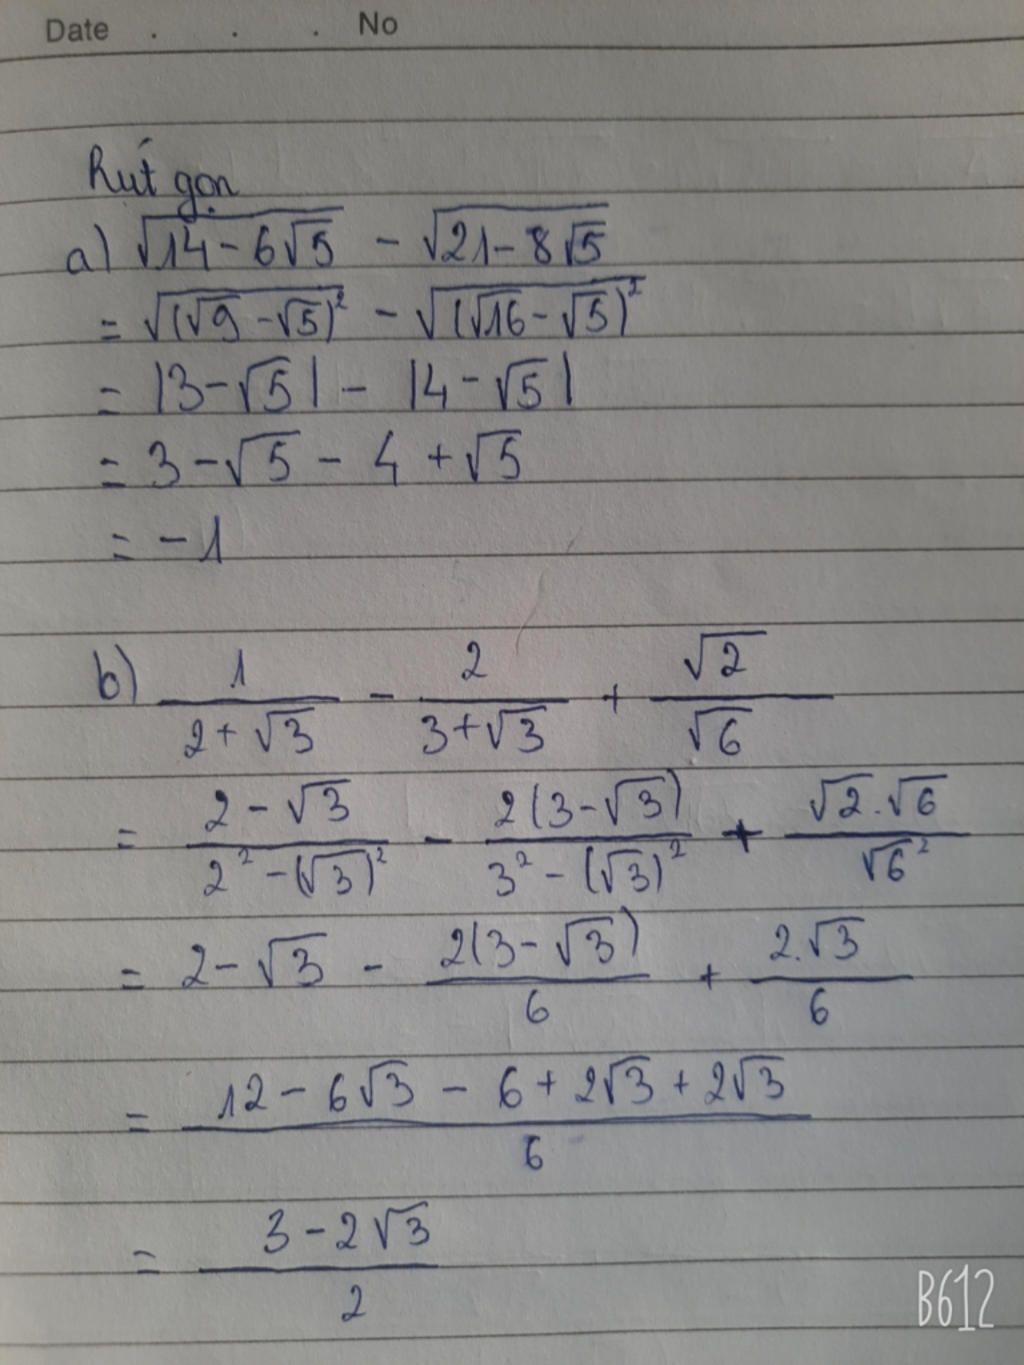 Date . . . No
Rút gọn
a) √(14 - 6√5) - √(21 - 8√5)
= √((√9 - √5)²) - √((√16 - √5)²)
= |3 - √5| - |4 - √5|
= 3 - √5 - 4 + √5
= -1
b) 1/(2 + √3) - 2/(3 + √3) + √2/√6
= (2 - √3)/(2² - (√3)²) - 2(3 - √3)/(3² - (√3)²) + √2.√6/√6²
= 2 - √3 - 2(3 - √3)/6 + 2.√3/6
= (12 - 6√3 - 6 + 2√3 + 2√3)/6
= (3 - 2√3)/2
B612